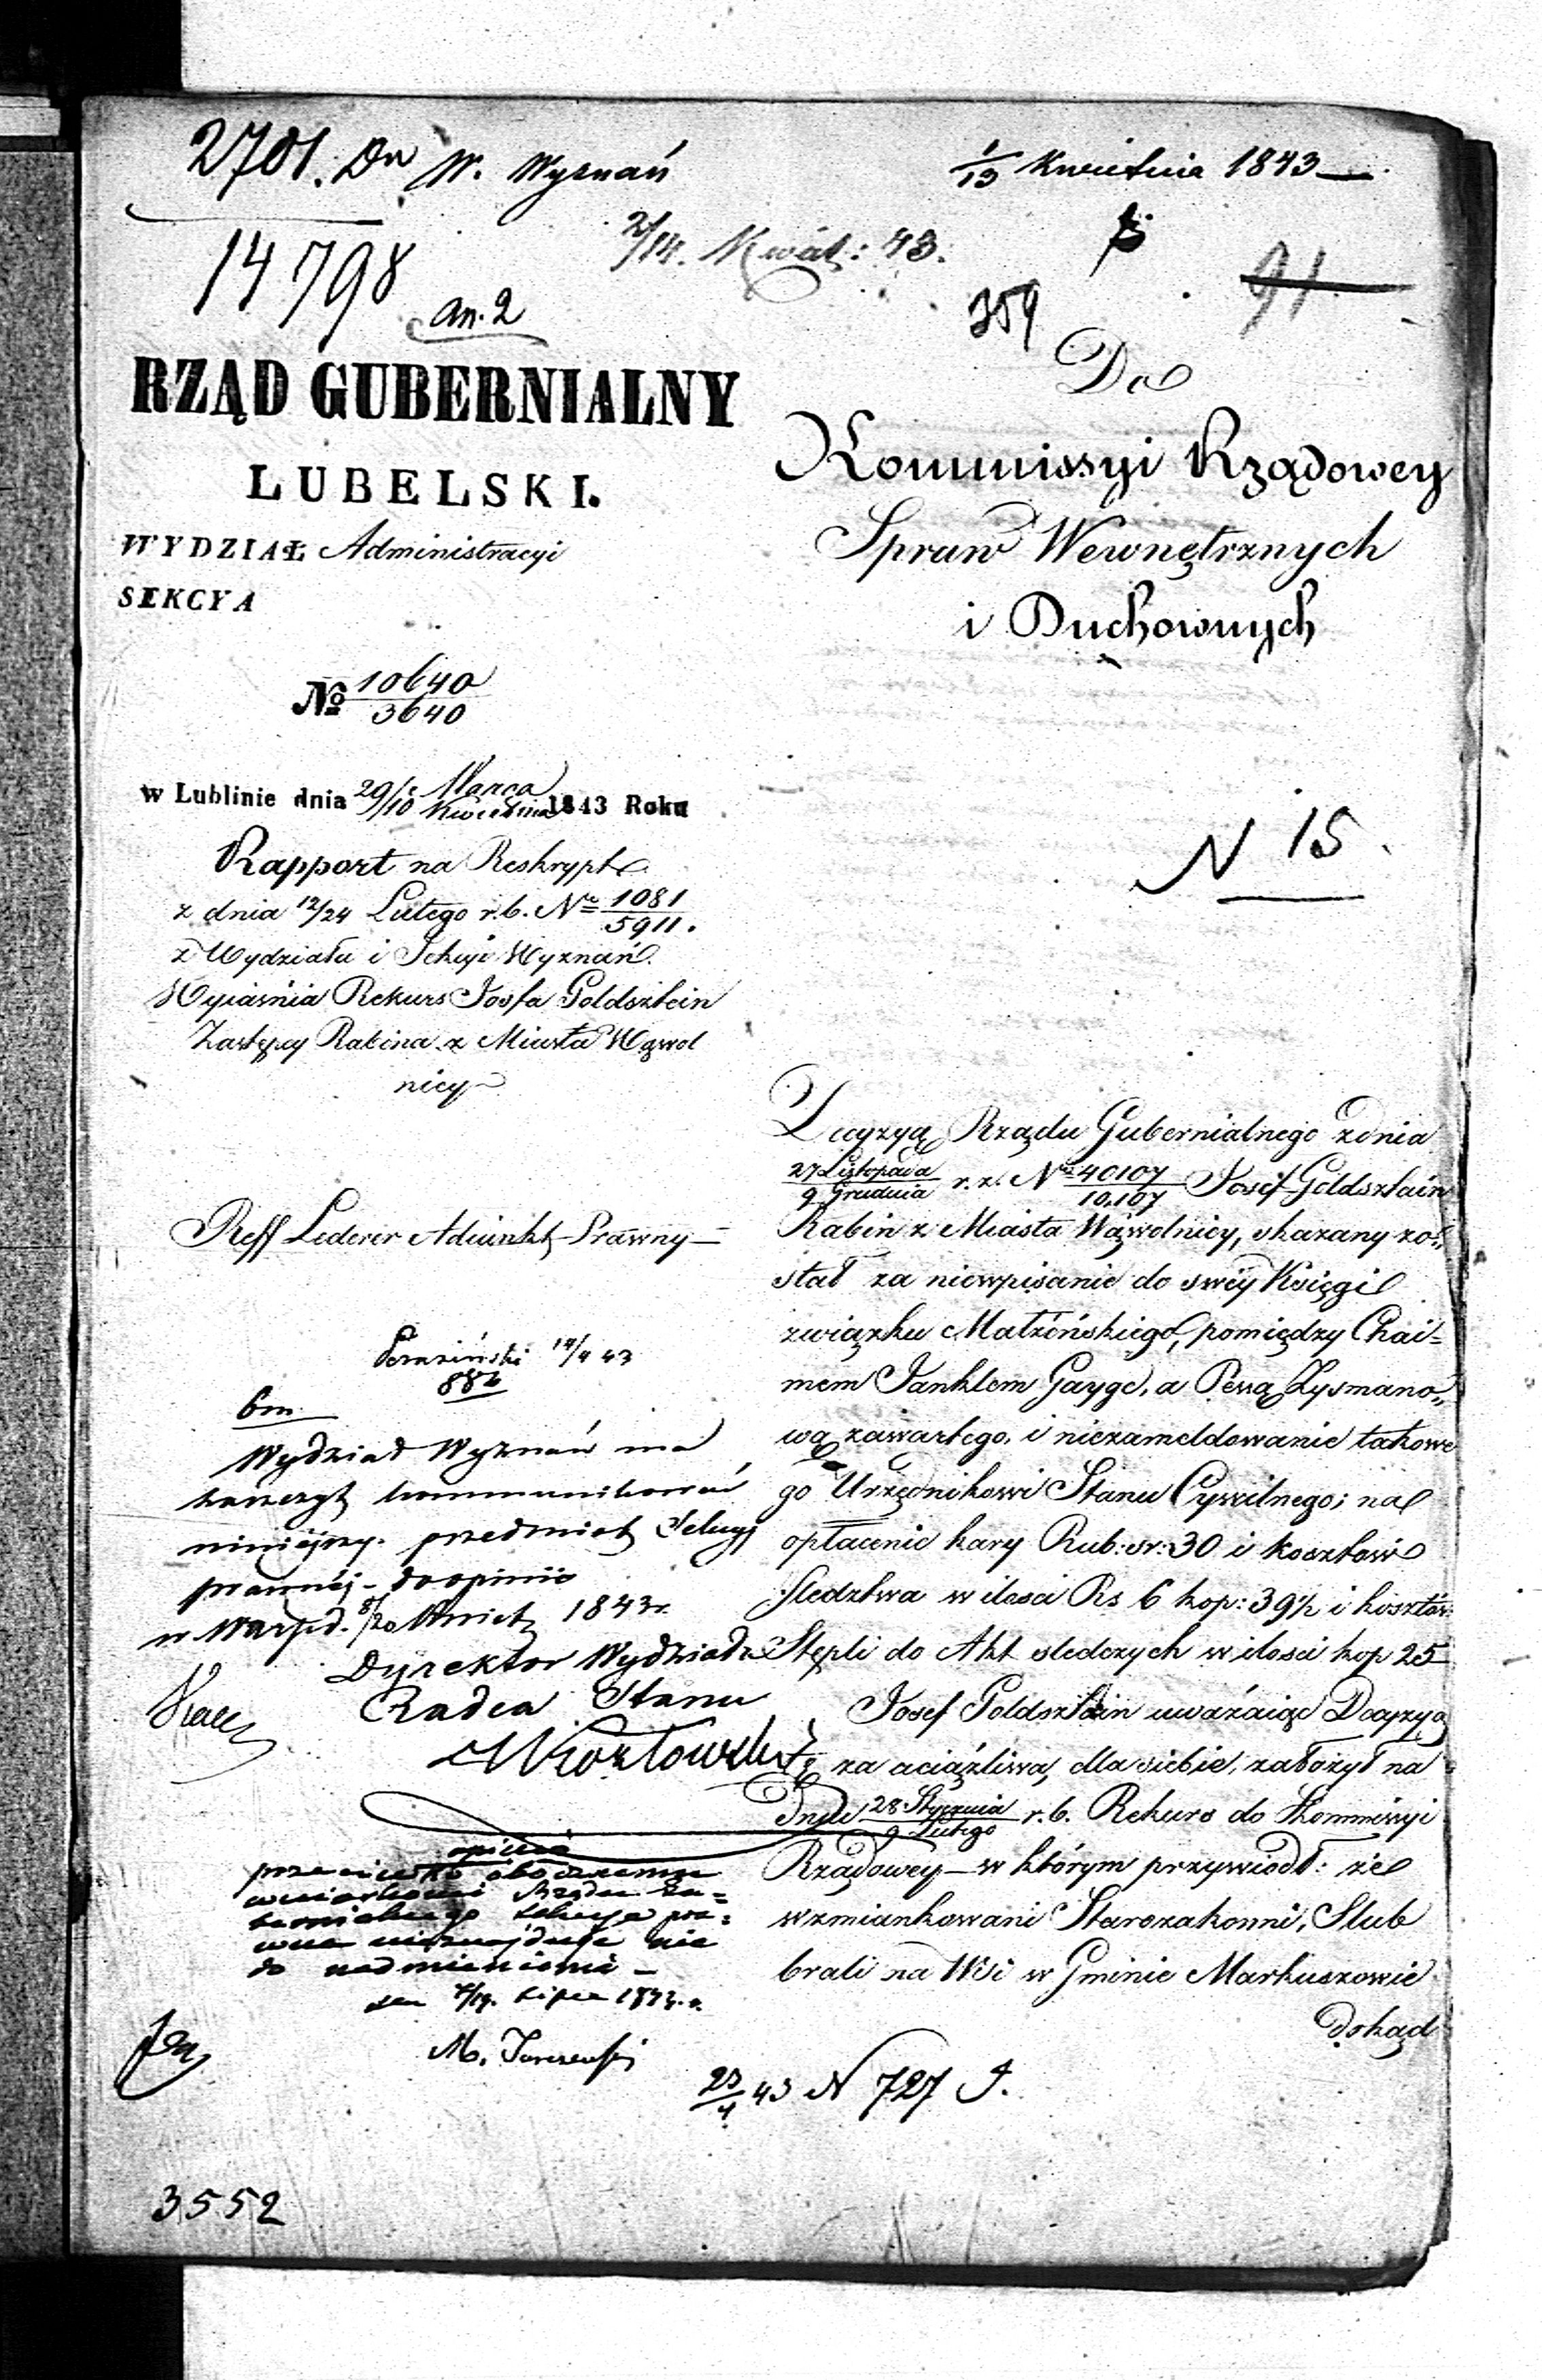 2701. Dn W. Wyznań
1/13 Kwietnia 1843
14798
2/14. Kwiet: 43.
91
an. 2
359
RZĄD GUBERNIALNY
LUBELSKI.
WYDZIAŁ Administracyi
SEKCYA
№ 10640/3640
w Lublinie dnia 29/10 Marca/Kwietnia 1843 Roku
Rapport na Reskrypt
z dnia 12/24 Lutego r. b. Nr 1081/5911.
z Wydziału i Sekcyi Wyznań.
Wyiaśnia Rekurs Josfa Goldsztein
Zastępcy Rabina z Miasta Wąwol
nicy
Reff Lederer Adiunkt Prawny
14/4 43
886
bm.
Wydział Wyznań ma
zaszczyt kommunikować
niniéjszy przedmiot Sekcyi
prawnéj do opinii
w Warsz. d. 8/20 Kwiet 1843 r.
Dyrektor Wydziału
Radca Stanu
Kozłowski
opinia
przeciwko obocznemu
wnioskowi Rządu Gu=
bernialnego Sekcya pra=
wna nieznajduje nic
do nadmienienia
Lipca 1843. r.
M.
3552
Do
Kommissyi Rządowey
Spraw Wewnętrznych
i Duchownych
N 15.
Decyzyą Rządu Gubernialnego zdnia
27 Listopada/9 Grudnia r. z. Nr 40107/10,107 Josif Goldsztain
Rabin z Miasta Wąwolnicy, skazany zo„
stał za niewpisanie do swéy Księgi
związku Małżeńskiego, pomiędzy Chai=
mem Janklem Gayge, a Pessą Zysmano„
wą zawartego, i niezameldowanie takowe
go Urzędnikowi Stanu Cywilnego; na
opłacenie kary Rub: sr: 30 i kosztów
śledztwa w ilości Rs 6 kop: 39½ i kosztów
Stępli do Akt śledczych w ilości kop 25
Josef Goldsztain uważaiąc Decyzyą
tę za uciążliwą, dla siebie, założył na
Dniu 28 Stycznia/9 Lutego r. b. Rekurs do Kommissyi
Rządowey – w którym przywiódł: że
wzmiankowani Starozakonni, Slub
brali na Wsi w Gminie Markuszowie
dokąd
23/4 43 N 727 J.